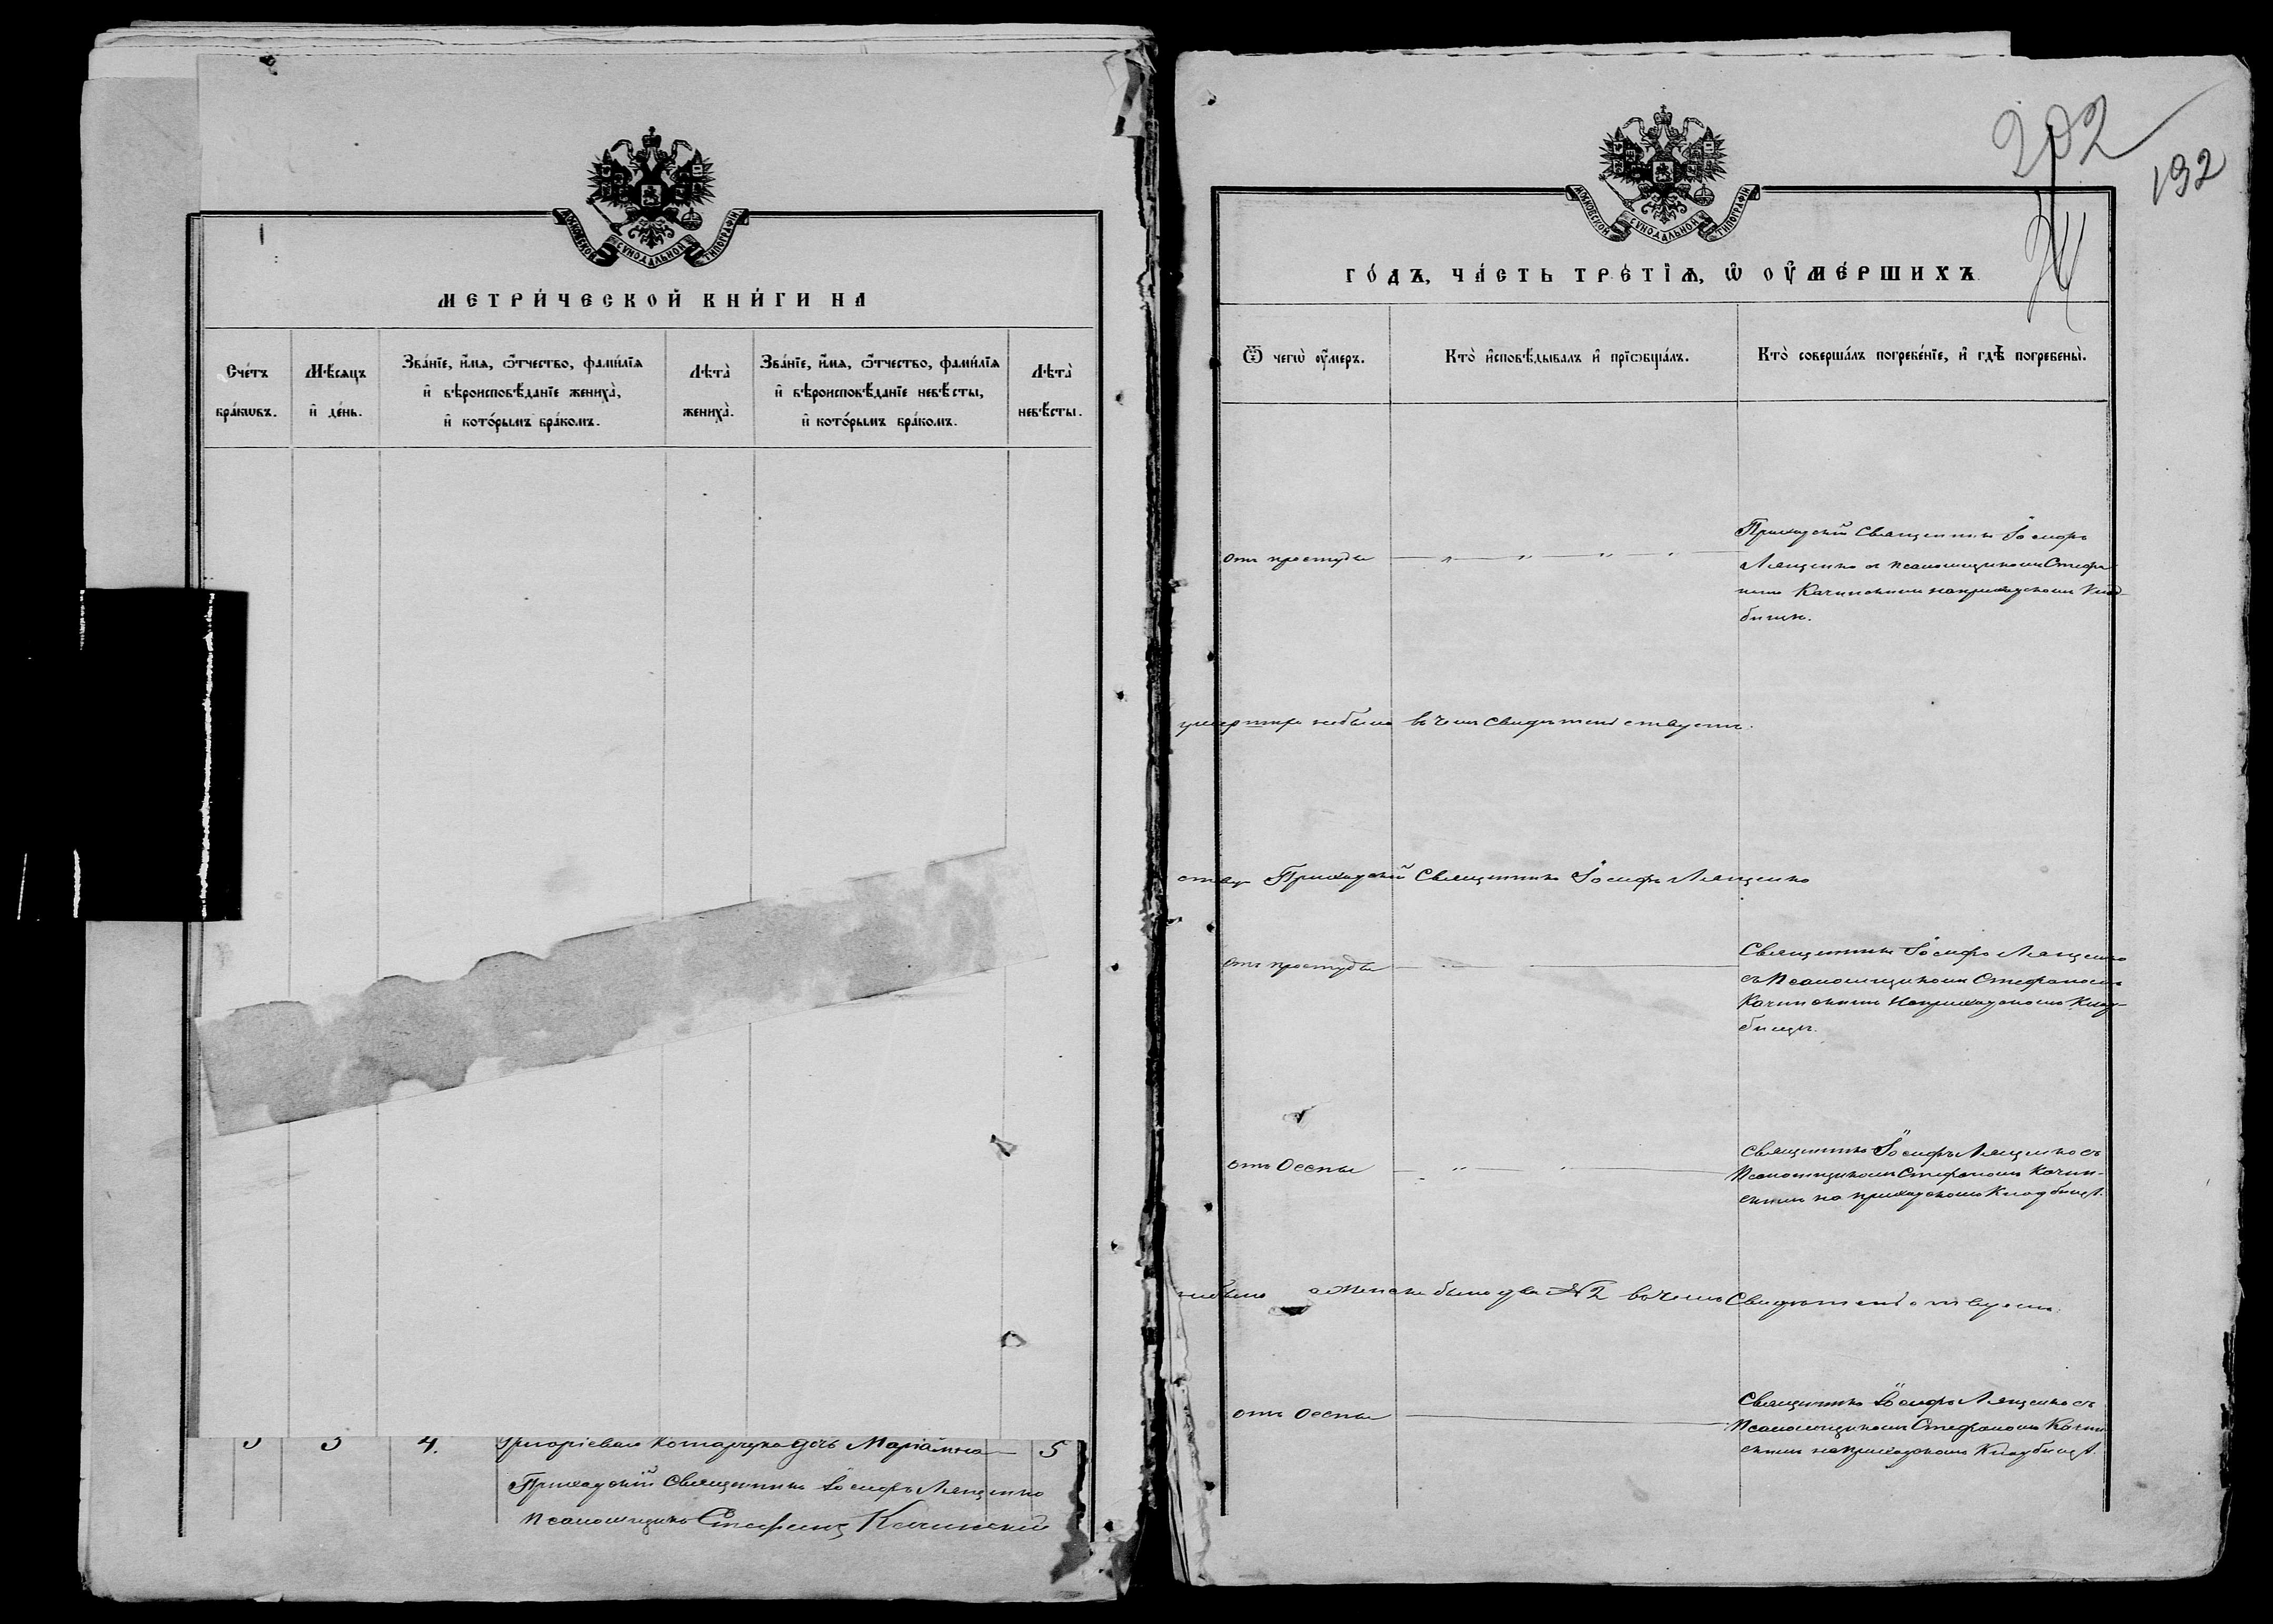 МОСКОВСКОЙ СѴНОДАЛЬНОЙ ТИПОГРАФІИ
МЕТРИ́ЧЕСКОЙ КНИ́ГИ НА
Сче́тъ бра́кѡвъ.
Мѣ́сяцъ и҆ де́нь.
Зва́нїе, и҆́мѧ, ѻ҆́тчество, фами́лїѧ
и҆ вѣроисповѣ́данїе жениха̀,
и҆ кото́рымъ бра́комъ.
Лѣта̀ жениха̀.
Зва́нїе, и҆́мѧ, ѻ҆́тчество, фами́лїѧ
и҆ вѣроисповѣ́данїе невѣ́сты,
и҆ кото́рымъ бра́комъ.
Лѣта̀ невѣ́сты.
3 3 4. Григоріевая дочь Маріамна 5
Приходскій Священникъ Іосифъ Лященко
Псаломщикъ Стефанъ Качинскій
202
192
МОСКОВСКОЙ СѴНОДАЛЬНОЙ ТИПОГРАФІИ
ГО́ДЪ, ЧА́СТЬ ТРЕ́ТЇѦ, Ѡ҆ ОУ҆МЕ́РШИХЪ
Ѿ чегѡ̀ оу҆́меръ.
Кто̀ и҆сповѣ́дывалъ и҆ прїѡбща́лъ.
Кто̀ соверша́лъ погребе́нїе, и҆ гдѣ̀ погребены̀.
отъ простуды
Приходскій Священникъ Іосифъ
Лященко съ псаломщикомъ Стефа-
номъ Качинскимъ на приходскомъ Клад-
бищѣ.
умершихъ небыло въ чемъ свидѣтельствуемъ.
Приходскій Священникъ Іосифъ Лященко
отъ простуды
Священникъ Іосифъ Лященко
съ Псаломщикомъ Стефаномъ
Качинскимъ на приходскомъ Клад-
бищѣ.
отъ Оспы
Священникъ Іосифъ Лященко съ
Псаломщикомъ Стефаномъ Качин-
скимъ на приходскомъ Кладбищѣ.
небыло а женска было два № 2 въ чемъ Свидѣтельствуемъ.
отъ Оспы
Священникъ Іосифъ Лященко съ
Псаломщикомъ Стефаномъ Качин-
скимъ на приходскомъ Кладбищѣ.